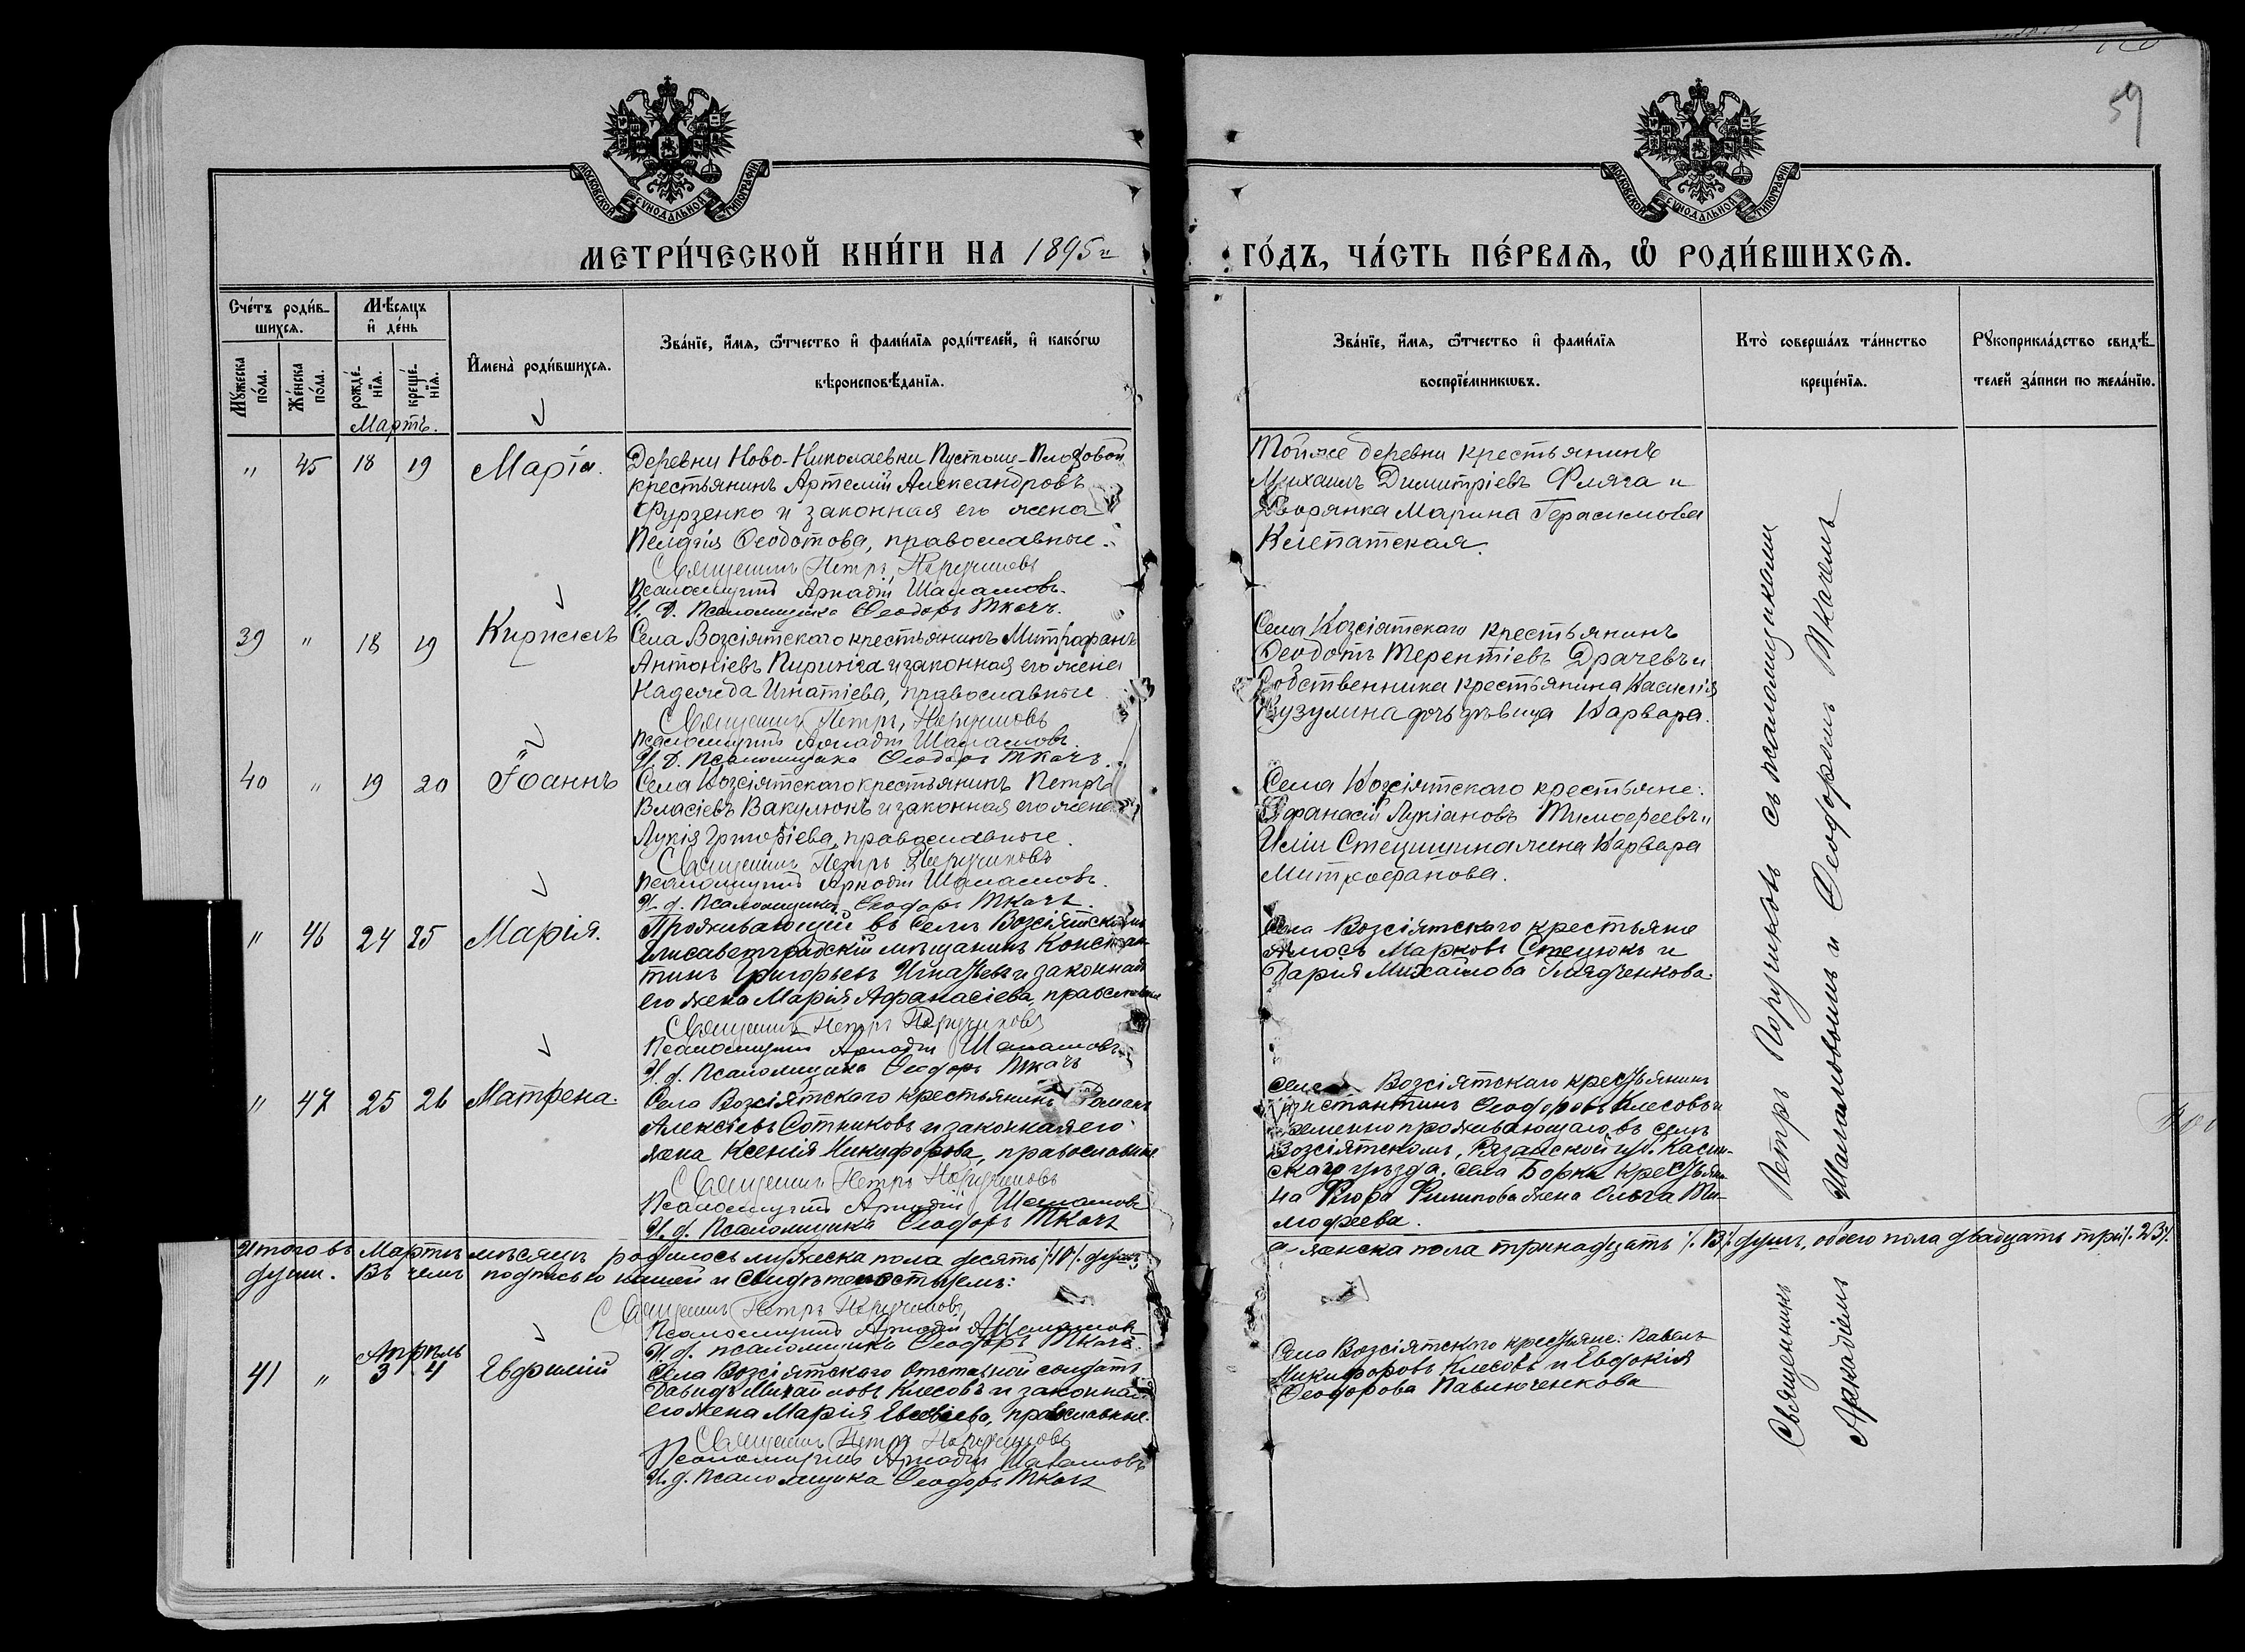 59
МОСКОВСКОЙ СУНОДАЛЬНОЙ ТИПОГРАФІИ
МОСКОВСКОЙ СУНОДАЛЬНОЙ ТИПОГРАФІИ
МЕТРИ́ЧЕСКОЙ КНИ́ГИ НА 1895 г.
ГО́ДЪ, ЧА́СТЬ ПЕ́РВАЯ, Ѡ РОДИ́ВШИХСЯ.
Сче́тъ роди́в-
шихся.
Мꙋжеска по́ла.
Же́нска по́ла.
Мѣсяцъ
и де́нь
рожде́-
нїя.
креще́-
нїя.
Имена̀ роди́вшихся.
Зва́нїе, и́мя, ѻ́тчество и фами́лїя роди́телей, и како́гѡ
вѣроисповѣ́данїя.
Зва́нїе, и́мя, ѻ́тчество и фами́лїя
воспрїе́мникѡвъ.
Кто̀ соверша́лъ та́инство
креще́нїя.
Рꙋкоприкла́дство свидѣ́-
телей за́писи по жела́нїю.
Мартъ.
" 45 18 19 Марія.
Деревни Ново-Николаевки Пустоши-Плозовой
крестьянинъ Артемій Александровъ
Фурзенко и законная его жена
Пелагія Ѳеодотова, православные.
Священникъ Петръ Поручиковъ
Псаломщикъ Аркадій Шаламовъ.
И. Д. Псаломщика Ѳеодоръ Ткачъ.
Тойже деревни крестьянинъ
Михаилъ Димитріевъ Фляга и
Дворянка Марина Герасимова
Клепатская.
39 " 18 19 Кириллъ
Села Возсіятскаго крестьянинъ Митрофанъ
Антоніевъ Пиринга и законная его жена
Надежда Игнатіева, православные
Священникъ Петръ Поручиковъ
Псаломщикъ Аркадій Шаламовъ.
И. Д. Псаломщика Ѳеодоръ Ткачъ.
Села Возсіятскаго крестьянинъ
Ѳеодотъ Терентіевъ Драчевъ и
Собственника крестьянина Василія
Кузулина дочь дѣвица Варвара.
40 " 19 20 Іоаннъ
Села Возсіятскаго крестьянинъ Петръ
Власіевъ Вакулюкъ и законная его жена
Лукія Григоріева, православные.
Священникъ Петръ Поручиковъ
Псаломщикъ Аркадій Шаламовъ.
И. д. Псаломщика Ѳеодоръ Ткачъ.
Села Возсіятскаго крестьяне:
Афанасій Лукіановъ Тимоѳеевъ и
Иліи Стецишина жена Варвара
Митрофанова.
" 46 24 25 Марія.
Проживающій въ селѣ Возсіятскомъ
Елисаветградскій мѣщанинъ Констан-
тинъ Григорьевъ Игнатьевъ и законная
его жена Марія Афанасіева, православные
Священникъ Петръ Поручиковъ
Псаломщикъ Аркадій Шаламовъ
И. д. Псаломщика Ѳеодоръ Ткачъ
Села Возсіятскаго крестьяне
Амосъ Марковъ Стецюкъ и
Дарія Михайлова Гладченкова.
" 47 25 26 Матрена.
Села Возсіятскаго крестьянинъ Романъ
Алексіевъ Сотниковъ и законная его
жена Ксенія Никифорова, православные
Священникъ Петръ Поручиковъ
Псаломщикъ Аркадій Шаламовъ
И. д. Псаломщика Ѳеодоръ Ткачъ
Села Возсіятскаго крестьянинъ
Константинъ Ѳеодоровъ Клесовъ и
временно проживающаго въ селѣ
Возсіятскомъ, Рязанской губ. Касим-
скаго уѣзда, села Борки крестьяни-
на Егора Филипова жена Ольга Ти-
моѳеева.
Итого въ Мартѣ мѣсяцѣ родилось мужеска пола десять /.10/. душъ
а женска пола тринадцать /.13/. душъ, обоего пола двадцать три /.23/.
души. Въ чемъ подписью нашей и свидѣтельствуемъ:
Священникъ Петръ Поручиковъ
Псаломщикъ Аркадій Шаламовъ
И. д. псаломщика Ѳеодоръ Ткачъ.
Апрѣль
41 " 3 4 Евфимій
Села Возсіятскаго отставной солдатъ
Давидъ Михайловъ Клесовъ и законная
его жена Марія Евсевіева, православные.
Священникъ Петръ Поручиковъ
Псаломщикъ Аркадій Шаламовъ
И. д. Псаломщика Ѳеодоръ Ткачъ
Села Возсіятскаго крестьяне: Павелъ
Никифоровъ Клесовъ и Евдокія
Ѳеодорова Павлюченкова
Священникъ Петръ Поручиковъ съ псаломщиками
Аркадіемъ Шаламовымъ и Ѳеодоромъ Ткачемъ